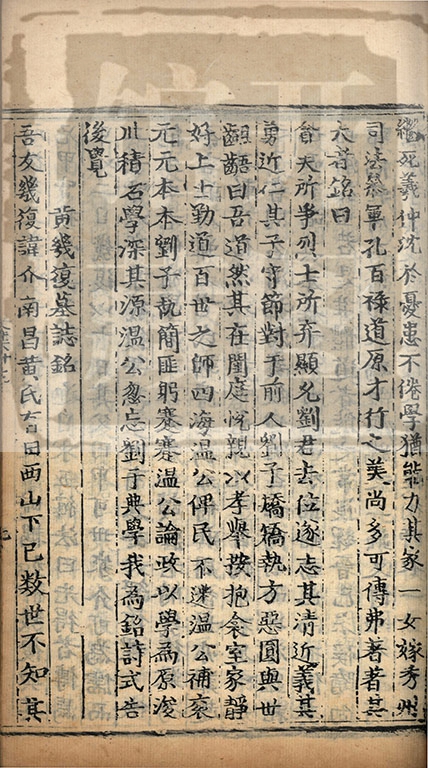 繼死羲仲沈於憂患不倦學猶能力其家一女嫁秀州
司法參軍孔百祿道原才行之美尚多可傳弗著著其
大者銘曰
會天所爭烈士所弃顯允劉君去位遂志其清近義其
勇近仁其子守節對于前人劉子矯矯執方惡圓與世
齟齬曰吾道然其在閨庭悅親以孝舉按抱衾室家靜
好上士勤道百世之師四海溫公俾民不迷溫公補袞
元元本本劉子執簡匪躬蹇蹇溫公論政以學為原浚
川積石學深其源溫公忽忘劉子典學我為銘詩式告
後覽
黃幾復墓誌銘
吾友幾復諱介南昌黃氏有田西山下已數世不知其